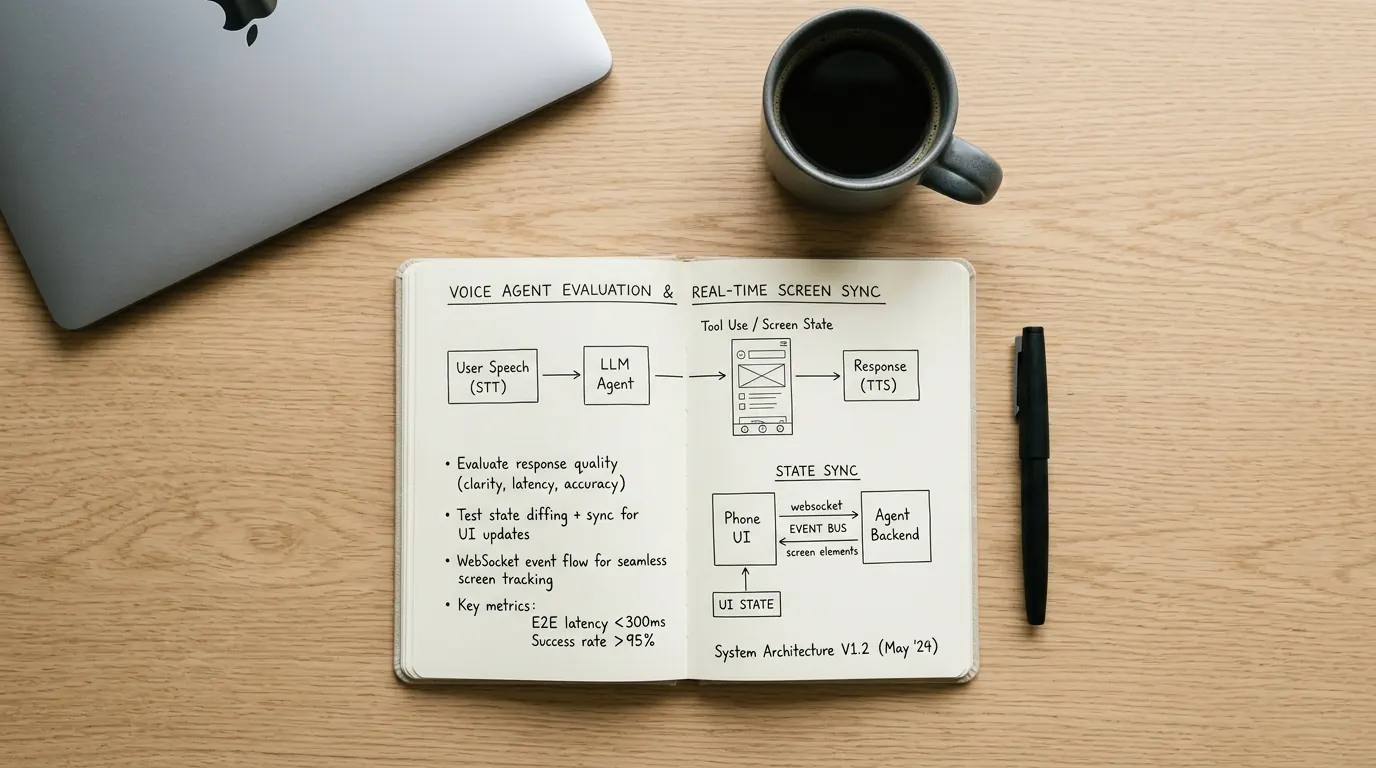 VOICE AGENT EVALUATION & REAL-TIME SCREEN SYNC
User Speech
(STT)
LLM
Agent
Tool Use / Screen State
Response
(TTS)
• Evaluate response quality
(clarity, latency, accuracy)
• Test state diffing + sync for
UI updates
• WebSocket event flow for seamless
screen tracking
• Key metrics:
E2E latency <300ms
Success rate >95%
STATE SYNC
Phone
UI
websocket
EVENT BUS
screen elements
Agent
Backend
UI STATE
System Architecture V1.2 (May '24)